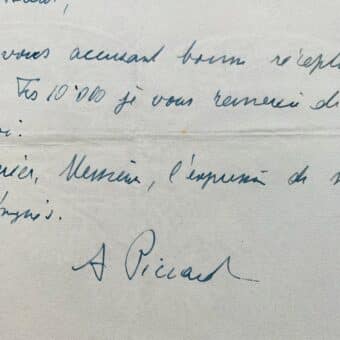 vous accusant bonne récepti
Frs 10'000 je vous remercie de
oi.
Messieurs, l'expression de
ingués.
A Piccard